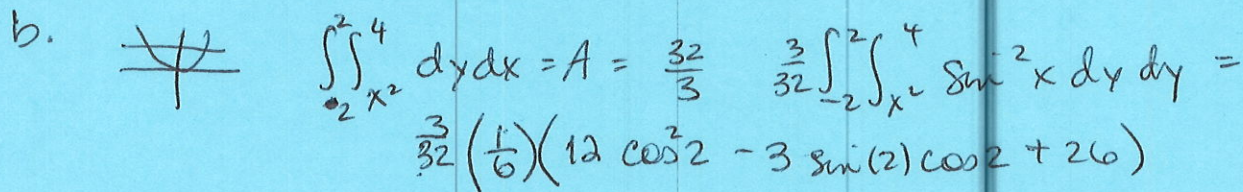 b. ∫_{-2}^{2}∫_{x²}^{4} dydx = A = 32/3 3/32 ∫_{-2}^{2}∫_{x²}^{4} Sin²x dy dy =
3/32 (1/6)(12 cos²2 - 3 sin(2) cos 2 + 26)